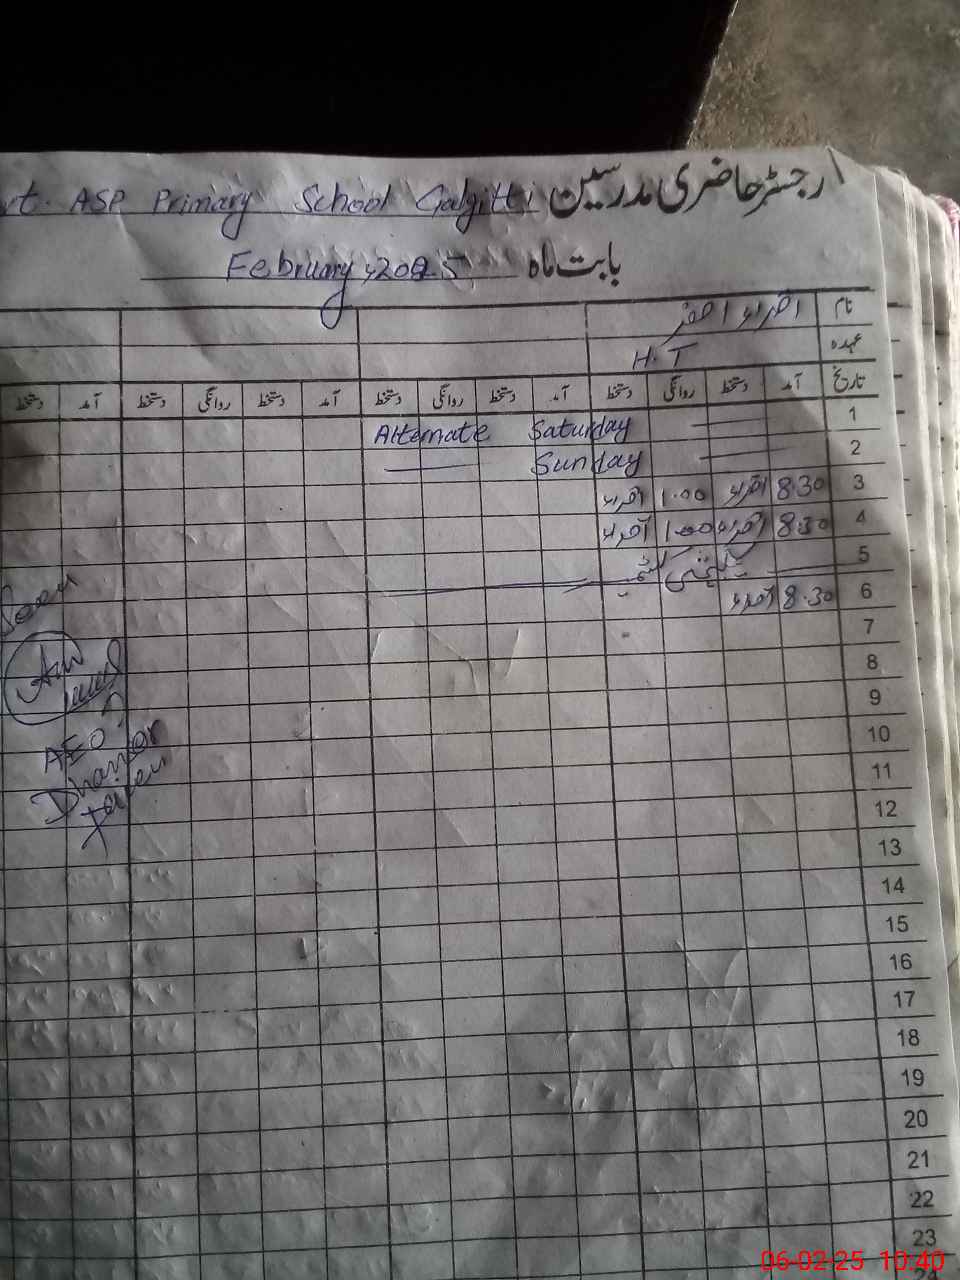 رجسٹر حاضری مدرسین rt. ASP Primary School Galgitti
بابت ماہ February, 2025
نام اقراء اصغر
عہدہ H.T
تاریخ آمد دستخط روانگی دستخط آمد دستخط روانگی دستخط آمد دستخط روانگی دستخط آمد دستخط
1 Alternate Saturday
2 Sunday
3 8.30 اقراء 1.00 اقراء
4 8.30 اقراء 1.00 اقراء
5 یکجہتی کشمیر
6 8.30 اقراء
7
8
9
10
11
12
13
14
15
16
17
18
19
20
21
22
23
24
Seen
AEO
06-02-25 10:40